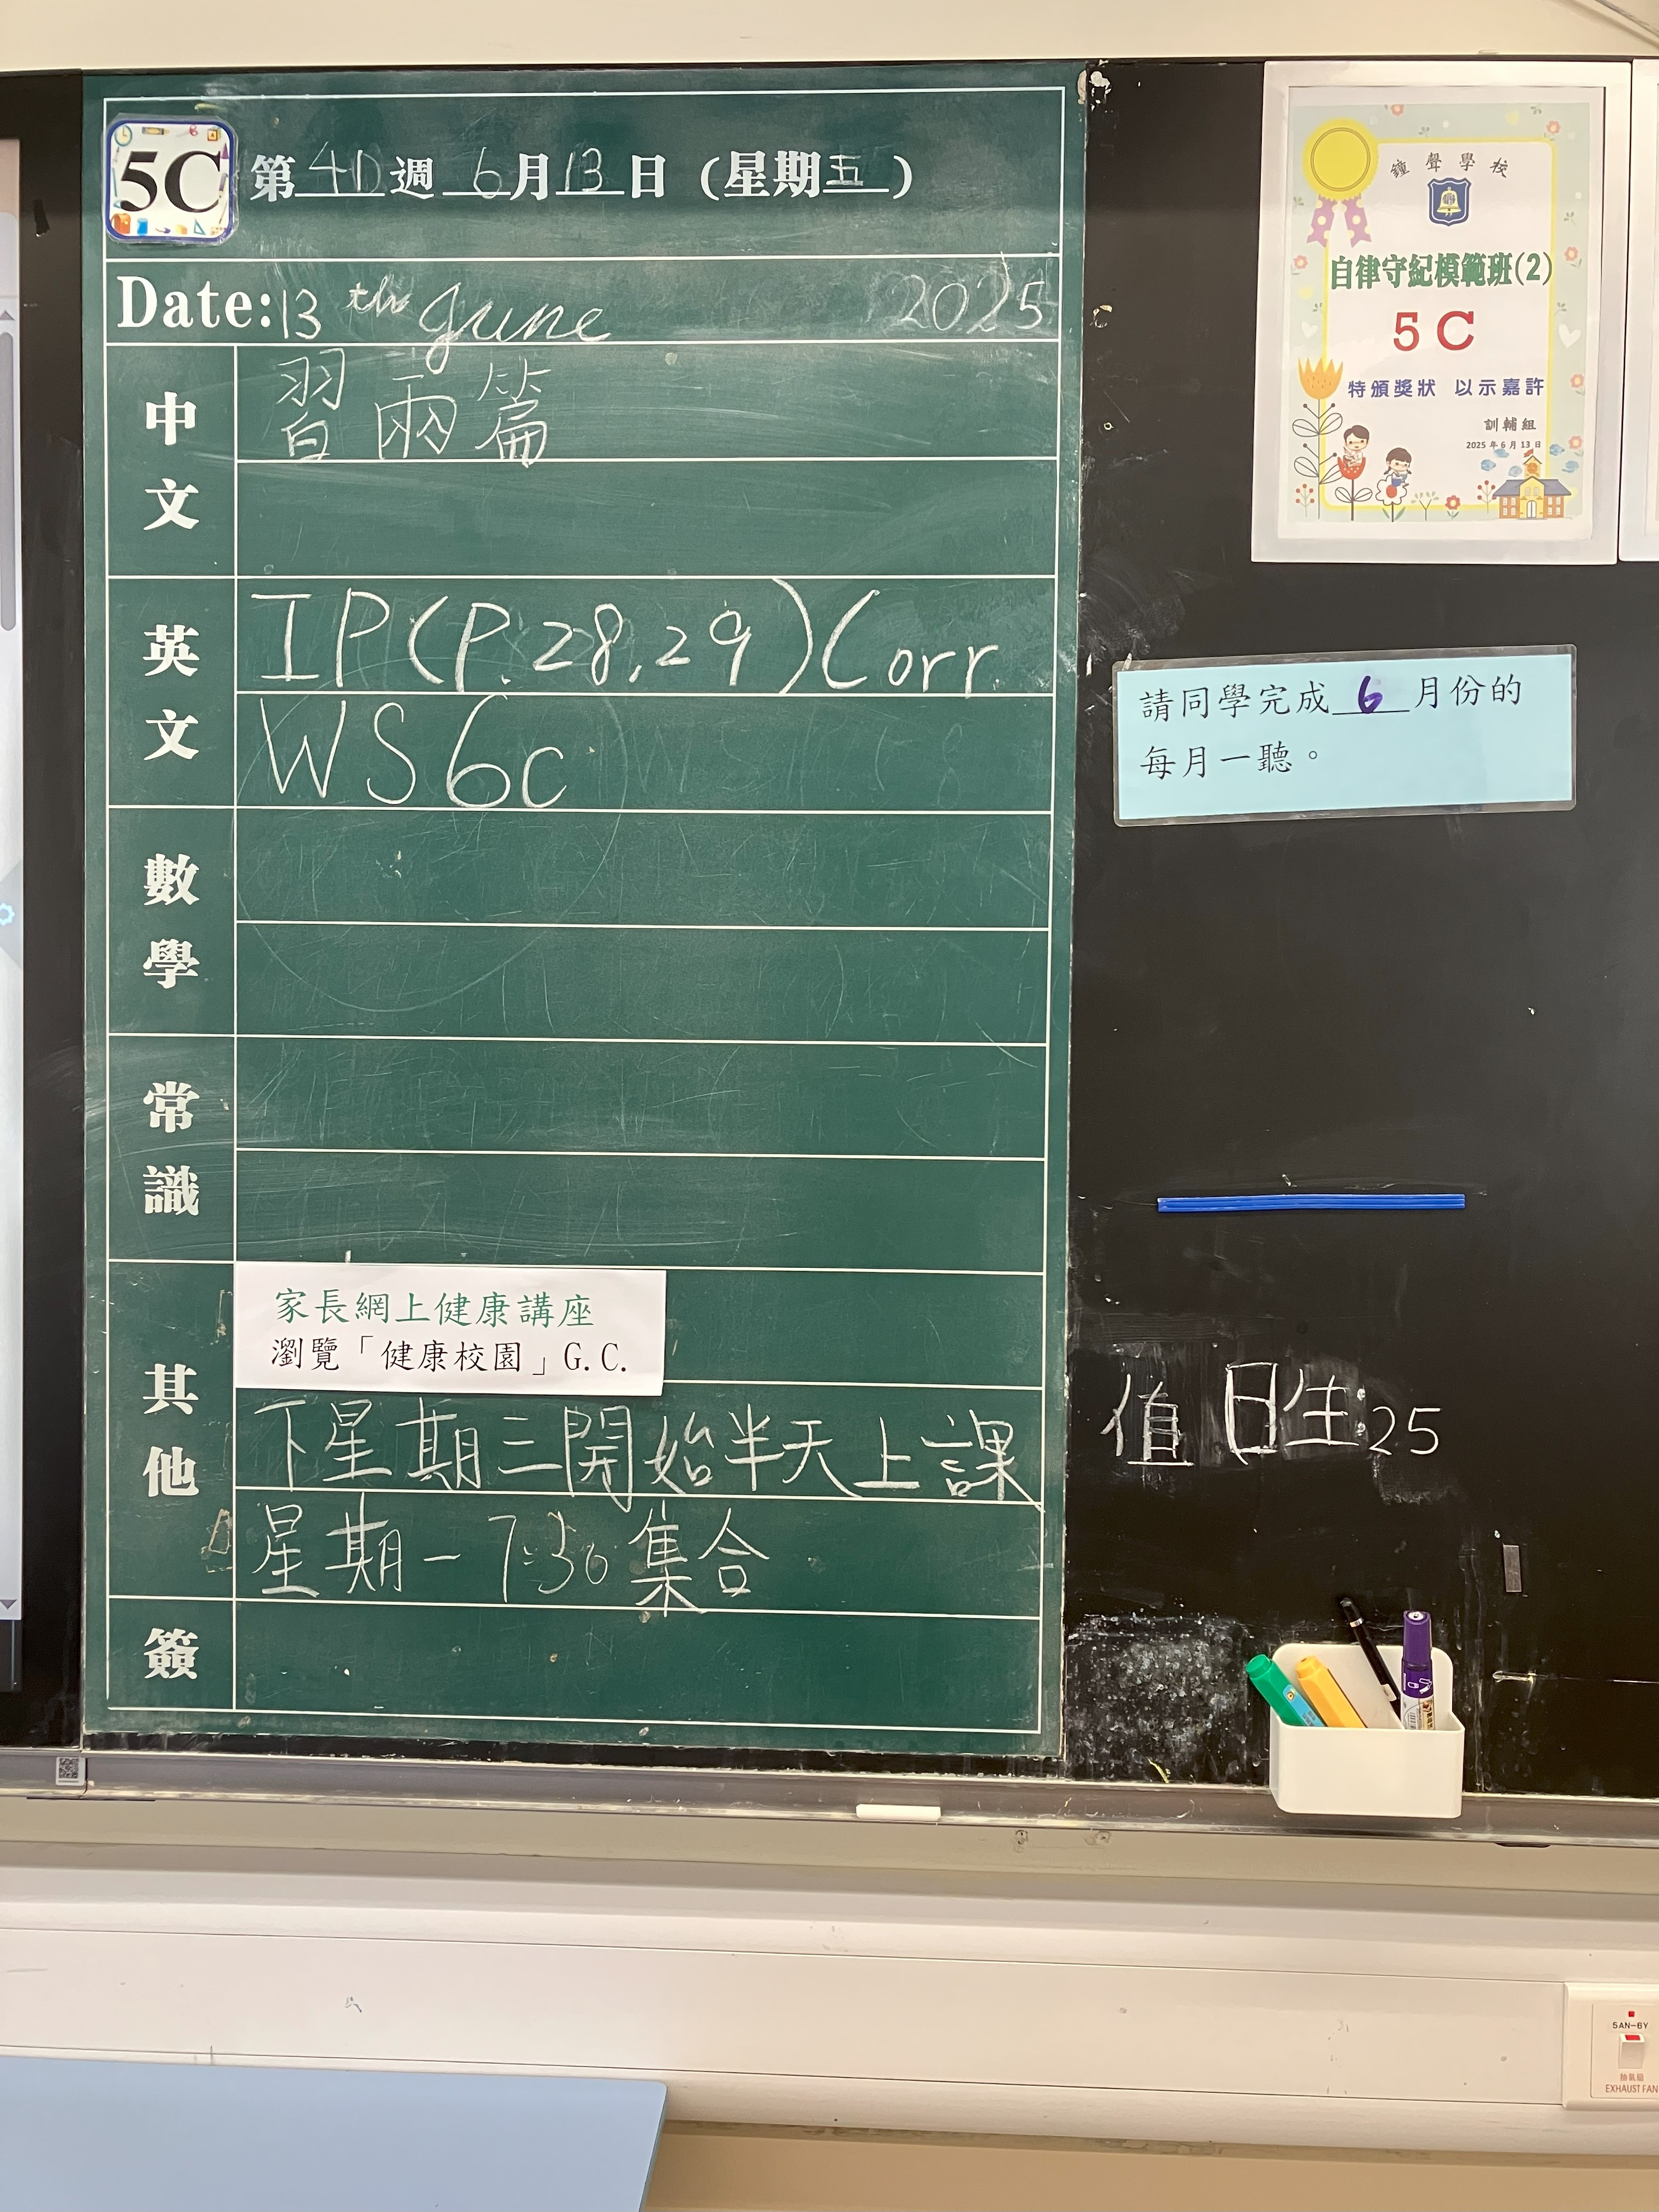 5C 第40週 6月13日 (星期五)
Date: 13th June 2025
中文
習兩篇
英文
IP (P.28,29) Corr.
WS6c
數學
常識
其他
家長網上健康講座
瀏覽「健康校園」G.C.
下星期三開始半天上課
星期一7:30集合
簽
鐘聲學校
自律守紀模範班(2)
5C
特頒獎狀 以示嘉許
訓輔組
2025年6月13日
請同學完成6月份的
每月一聽。
值日生:25
5AN-6Y
抽氣扇
EXHAUST FAN